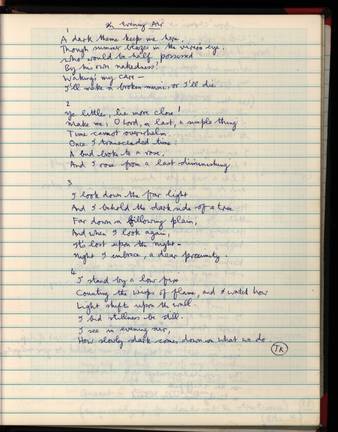 In Evening Air
1
A dark theme keeps me here,
Though summer blazes in the vireo's eye.
Who would be half possessed
By his own nakedness?
Waking's my care –
I'll make a broken music, or I'll die.
2
Ye littles, lie more close!
Make me, O Lord, a last, a simple thing
Time cannot overwhelm.
Once I transcended time:
A bud broke to a rose,
And I rose from a last diminishing.
3
I look down the far light
And I behold the dark side of a tree
Far down a billowing plain,
And when I look again,
It's lost upon the night –
Night I embrace, a dear proximity.
4
I stand by a low fire
Counting the wisps of flame, and I watch how
Light shifts upon the wall.
I bid stillness be still.
I see in evening air,
How slowly dark comes down on what we do.
TR